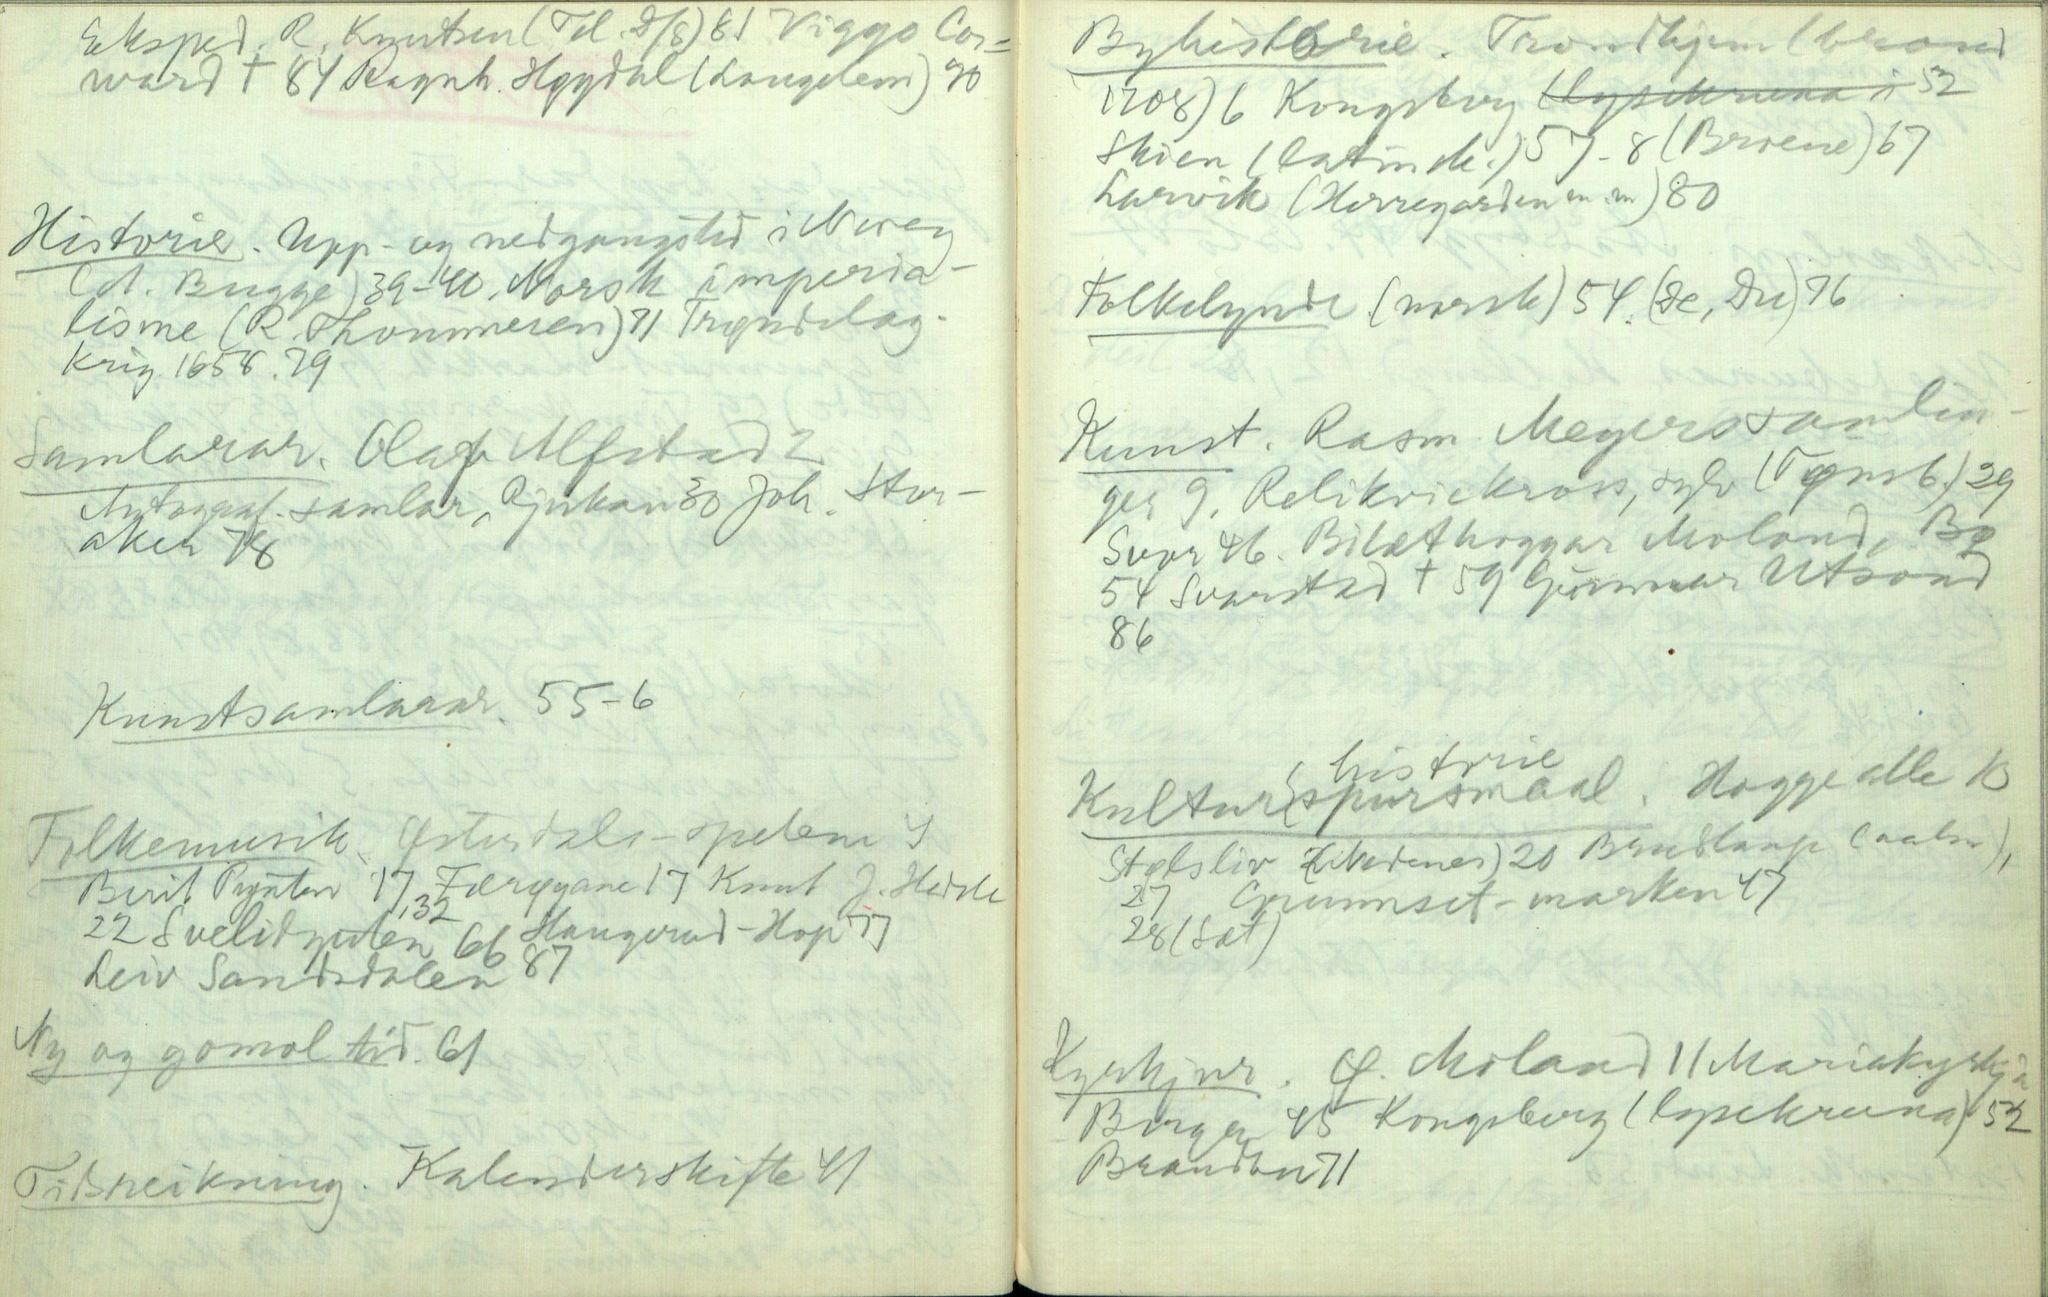 Eksped. R. Knutsen (Tel. D/S) 81 Viggo Cor=
ward † 84 Ragnh. Høgdal (Langelem) 90
Historie. Upp- og nedgangstid i Noreg
(A. Bugge) 39-40. Norsk imperia-
lisme (R. Thommesen) 71 Trøndelag-
krig 1658. 79
Samlarar. Olaf Alfstad 2
Autograf-samlar, Rjukan 30 Joh. Stor-
aker 78
Kunstsamlarar. 55-6
Folkemusik. Østerdals-spelem 4
Berit Pynten 17, 32 Færøyane 17 Knut J. Heddle
22 Svelidjuten 66 Haugerud-Hop 77
Leiv Sandsdalen 87
Ny og gomol tid. 61
Tidsreikning. Kalenderskifte 41
Byhistorie. Trondhjem (brand
1708) 6 Kongsberg (lysekruna i 52
Skien (latinsk.) 57-8 (Brviene) 67
Larvik (Herregarden m.m) 80
Folkelynde (norsk) 54. (De, Du) 76
Kunst. Rasm. Meyers samlin-
ger 9. Relikviekross, sylv (Tønsb.) 29
Svor 46. Bilæthoggar Moland, Bø
54 Svarstad † 59 Gunnar Utsond
86
Kultur(historie
spursmaal. Hogge alle 10
Stølsliv (Likedenes) 20 Brudlaup (aalm),
27 Grunnset-marken 47
28 (Sæt)
Kyrkjur. Ø. Moland 11 Mariakyrkja
Bergen 45 Kongsberg (lysekruna) 52
Brandbu 71